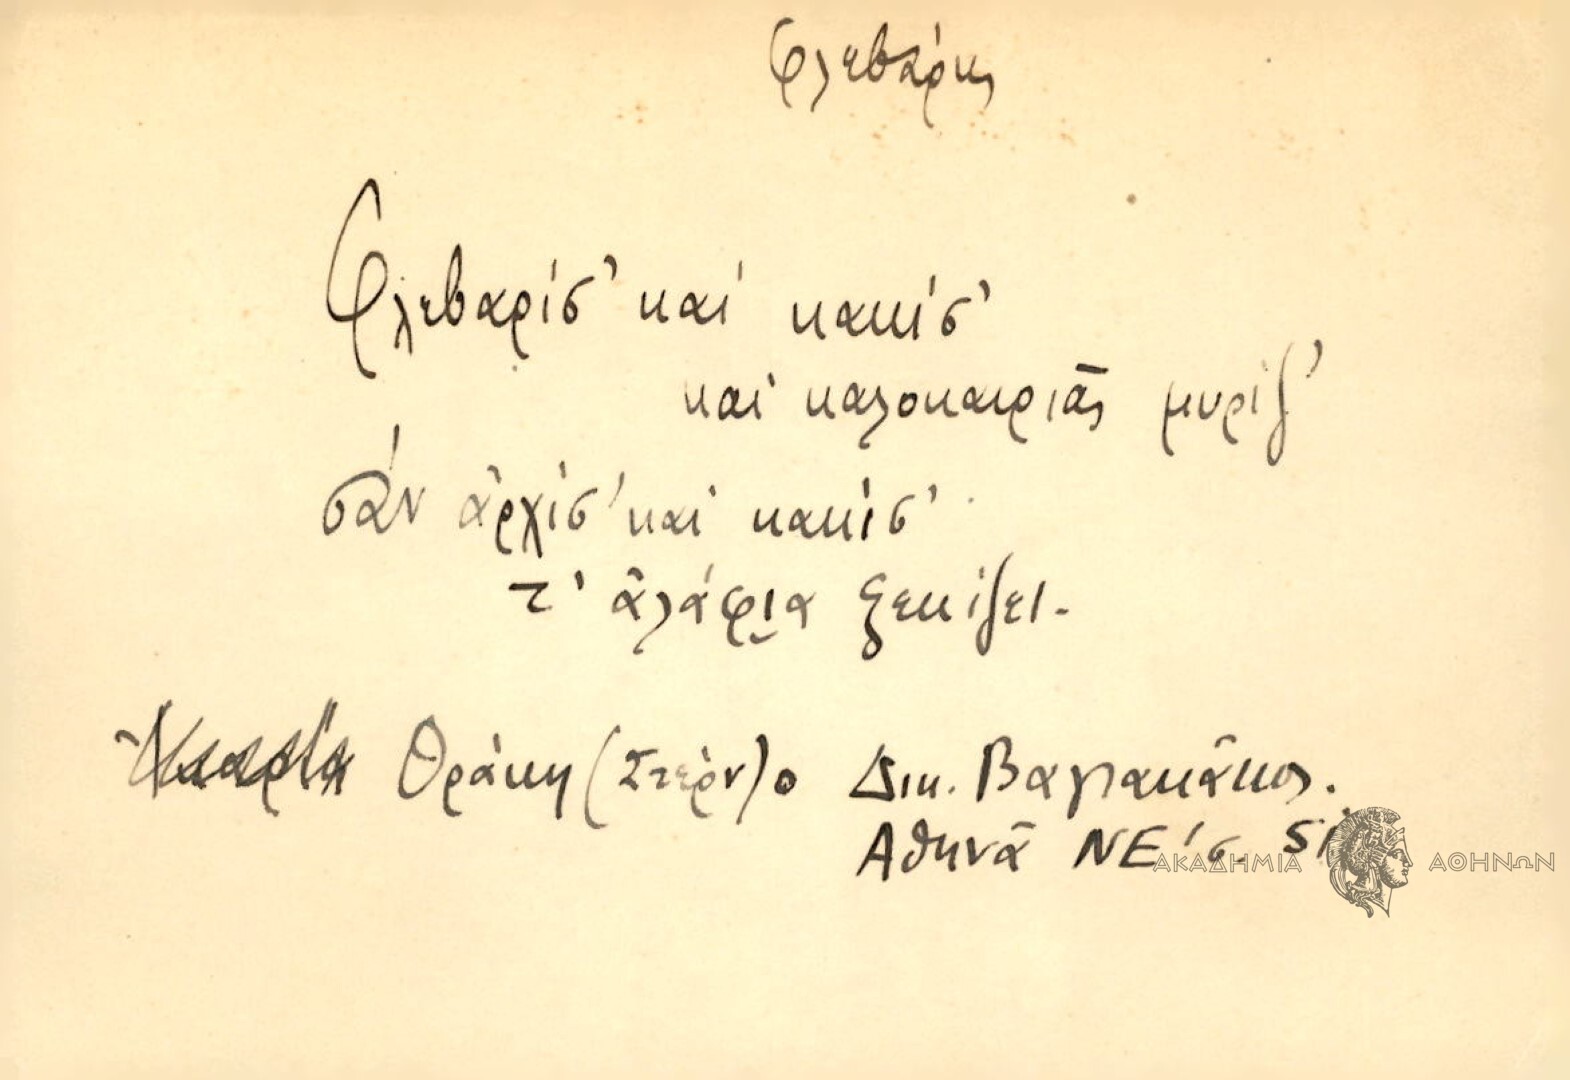 Φλεβάρης
Φλεβαρίσ' καί κακίσ'
καί καλοκαιριᾶς μυρίζ'
σάν ἀρχίσ' καί κακίσ'
τ' ἀλάφια ξεκίζει.
Θράκη (Στέρν) ο Δικ. Βαγιακάκος.
Ἀθηνᾶ ΝΕ'
ΑΚΑΔΗΜΙΑ ΑΘΗΝΩΝ